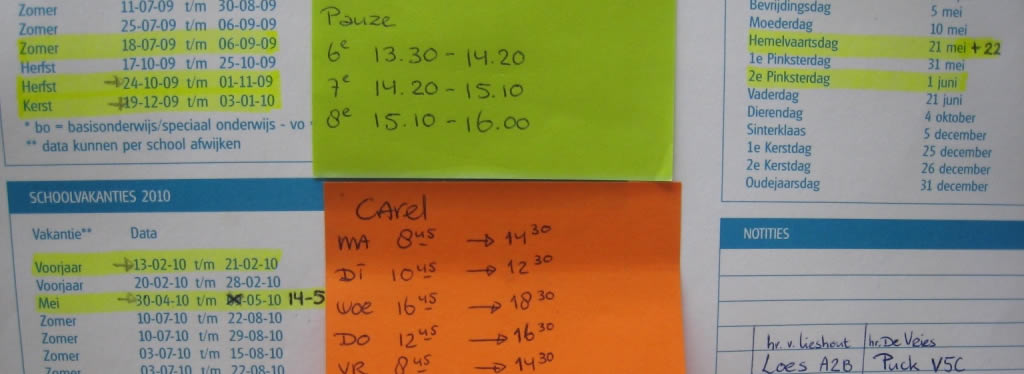 Zomer 11-07-09 t/m 30-08-09
Zomer 25-07-09 t/m 06-09-09
Zomer 18-07-09 t/m 06-09-09
Herfst 17-10-09 t/m 25-10-09
Herfst →24-10-09 t/m 01-11-09
Kerst →19-12-09 t/m 03-01-10
* bo = basisonderwijs/speciaal onderwijs - vo
** data kunnen per school afwijken
SCHOOLVAKANTIES 2010
Vakantie** Data
Voorjaar →13-02-10 t/m 21-02-10
Voorjaar 20-02-10 t/m 28-02-10
Mei →30-04-10 t/m -05-10 14-5
Zomer 10-07-10 t/m 22-08-10
Zomer 10-07-10 t/m 29-08-10
Zomer 03-07-10 t/m 15-08-10
Zomer 03-07-10 t/m 22-08-10
Pauze
6e 13.30 - 14.20
7e 14.20 - 15.10
8e 15.10 - 16.00
CArel
MA 8 45 → 14 30
DI 10 45 → 12 30
WOE 16 45 → 18 30
DO 12 45 → 16 30
VR 8 45 → 14 30
Bevrijdingsdag 5 mei
Moederdag 10 mei
Hemelvaartsdag 21 mei +22
1e Pinksterdag 31 mei
2e Pinksterdag 1 juni
Vaderdag 21 juni
Dierendag 4 oktober
Sinterklaas 5 december
1e Kerstdag 25 december
2e Kerstdag 26 december
Oudejaarsdag 31 december
NOTITIES
hr. v. Lieshout hr. De Vries
Loes A2B Puck V5C